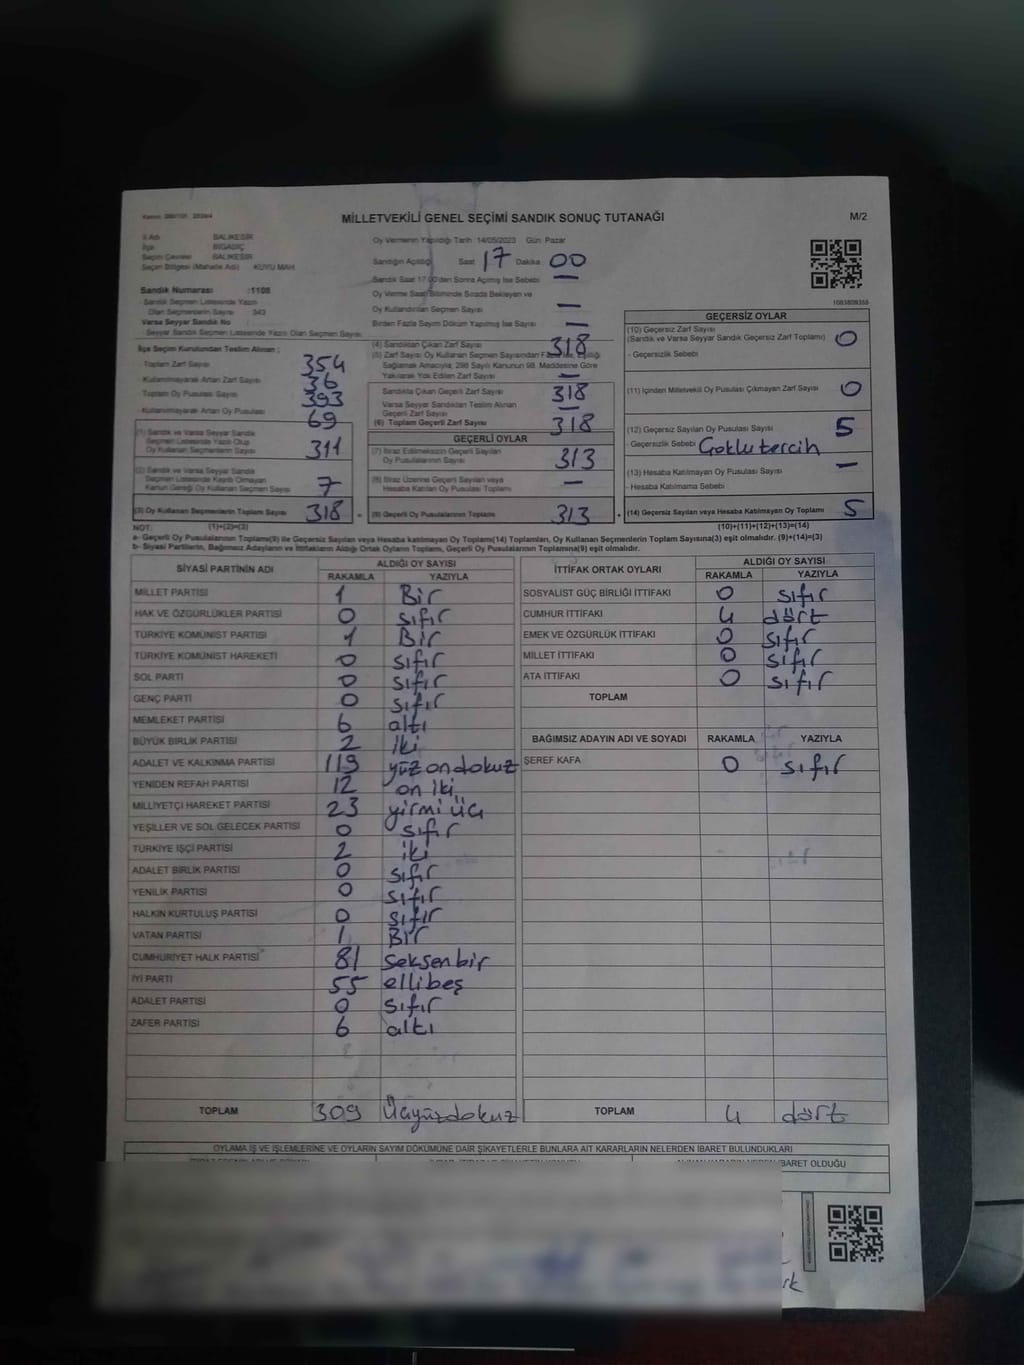 MİLLETVEKİLİ GENEL SEÇİMİ SANDIK SONUÇ TUTANAĞI
M/2
İl Adı BALIKESİR
İlçe BİGADİÇ
Seçim Çevresi BALIKESİR
Seçim Bölgesi (Mahalle Adı) KUYU MAH
Sandık Numarası :1108
Sandık Seçmen Listesinde Yazılı
Olan Seçmenlerin Sayısı 343
Varsa Seyyar Sandık No
Seyyar Sandık Seçmen Listesinde Yazılı Olan Seçmen Sayısı
İlçe Seçim Kurulundan Teslim Alınan ;
Toplam Zarf Sayısı 354
Kullanılmayarak Artan Zarf Sayısı 36
Toplam Oy Pusulası Sayısı 393
Kullanılmayarak Artan Oy Pusulası 69
(1) Sandık ve Varsa Seyyar Sandık
Seçmen Listesinde Yazılı Olup
Oy Kullanan Seçmenlerin Sayısı 311
(2) Sandık ve Varsa Seyyar Sandık
Seçmen Listesinde Kayıtlı Olmayan
Kanun Gereği Oy Kullanan Seçmen Sayısı 7
(3) Oy Kullanan Seçmenlerin Toplam Sayısı 318
Oy Vermenin Yapıldığı Tarih 14/05/2023 Gün Pazar
Sandığın Açıldığı Saat 17 Dakika 00
Sandık Saat 17.00'den Sonra Açılmış İse Sebebi —
Oy Verme Saati Bitiminde Sırada Bekleyen ve
Oy Kullandırılan Seçmen Sayısı —
Birden Fazla Sayım Döküm Yapılmış İse Sayısı —
(4) Sandıktan Çıkan Zarf Sayısı 318
(5) Zarf Sayısı Oy Kullanan Seçmen Sayısından Fazla İse, Eşitliği
Sağlamak Amacıyla, 298 Sayılı Kanunun 98. Maddesine Göre
Yakılarak Yok Edilen Zarf Sayısı —
Sandıkta Çıkan Geçerli Zarf Sayısı 318
Varsa Seyyar Sandıktan Teslim Alınan
Geçerli Zarf Sayısı —
(6) Toplam Geçerli Zarf Sayısı 318
GEÇERLİ OYLAR
(7) İtiraz Edilmeksizin Geçerli Sayılan
Oy Pusulalarının Sayısı 313
(8) İtiraz Üzerine Geçerli Sayılan veya
Hesaba Katılan Oy Pusulası Toplamı —
(9) Geçerli Oy Pusulalarının Toplamı 313
1083809358
GEÇERSİZ OYLAR
(10) Geçersiz Zarf Sayısı
(Sandık ve Varsa Seyyar Sandık Geçersiz Zarf Toplamı) 0
- Geçersizlik Sebebi
(11) İçinden Milletvekili Oy Pusulası Çıkmayan Zarf Sayısı 0
(12) Geçersiz Sayılan Oy Pusulası Sayısı 5
- Geçersizlik Sebebi Çoklu tercih
(13) Hesaba Katılmayan Oy Pusulası Sayısı —
- Hesaba Katılmama Sebebi
(14) Geçersiz Sayılan veya Hesaba Katılmayan Oy Toplamı 5
NOT: (1)+(2)=(3)
(10)+(11)+(12)+(13)=(14)
a- Geçerli Oy Pusulalarının Toplamı(9) ile Geçersiz Sayılan veya Hesaba katılmayan Oy Toplamı(14) Toplamları, Oy Kullanan Seçmenlerin Toplam Sayısına(3) eşit olmalıdır. (9)+(14)=(3)
b- Siyasi Partilerin, Bağımsız Adayların ve İttifakların Aldığı Ortak Oyların Toplamı, Geçerli Oy Pusulalarının Toplamına(9) eşit olmalıdır.
SİYASİ PARTİNİN ADI ALDIĞI OY SAYISI
RAKAMLA YAZIYLA
MİLLET PARTİSİ 1 Bir
HAK VE ÖZGÜRLÜKLER PARTİSİ 0 sıfır
TÜRKİYE KOMÜNİST PARTİSİ 1 Bir
TÜRKİYE KOMÜNİST HAREKETİ 0 sıfır
SOL PARTİ 0 sıfır
GENÇ PARTİ 0 sıfır
MEMLEKET PARTİSİ 6 altı
BÜYÜK BİRLİK PARTİSİ 2 iki
ADALET VE KALKINMA PARTİSİ 119 yüz on dokuz
YENİDEN REFAH PARTİSİ 12 on iki
MİLLİYETÇİ HAREKET PARTİSİ 23 yirmi üç
YEŞİLLER VE SOL GELECEK PARTİSİ 0 sıfır
TÜRKİYE İŞÇİ PARTİSİ 2 iki
ADALET BİRLİK PARTİSİ 0 sıfır
YENİLİK PARTİSİ 0 sıfır
HALKIN KURTULUŞ PARTİSİ 0 sıfır
VATAN PARTİSİ 1 Bir
CUMHURİYET HALK PARTİSİ 81 seksen bir
İYİ PARTİ 55 elli beş
ADALET PARTİSİ 0 sıfır
ZAFER PARTİSİ 6 altı
TOPLAM 309 Üçyüzdokuz
İTTİFAK ORTAK OYLARI ALDIĞI OY SAYISI
RAKAMLA YAZIYLA
SOSYALİST GÜÇ BİRLİĞİ İTTİFAKI 0 sıfır
CUMHUR İTTİFAKI 4 dört
EMEK VE ÖZGÜRLÜK İTTİFAKI 0 sıfır
MİLLET İTTİFAKI 0 sıfır
ATA İTTİFAKI 0 sıfır
TOPLAM
BAĞIMSIZ ADAYIN ADI VE SOYADI RAKAMLA YAZIYLA
ŞEREF KAFA 0 sıfır
TOPLAM 4 dört
OYLAMA İŞ VE İŞLEMLERİNE VE OYLARIN SAYIM DÖKÜMÜNE DAİR ŞİKAYETLERLE BUNLARA AİT KARARLARIN NELERDEN İBARET BULUNDUKLARI